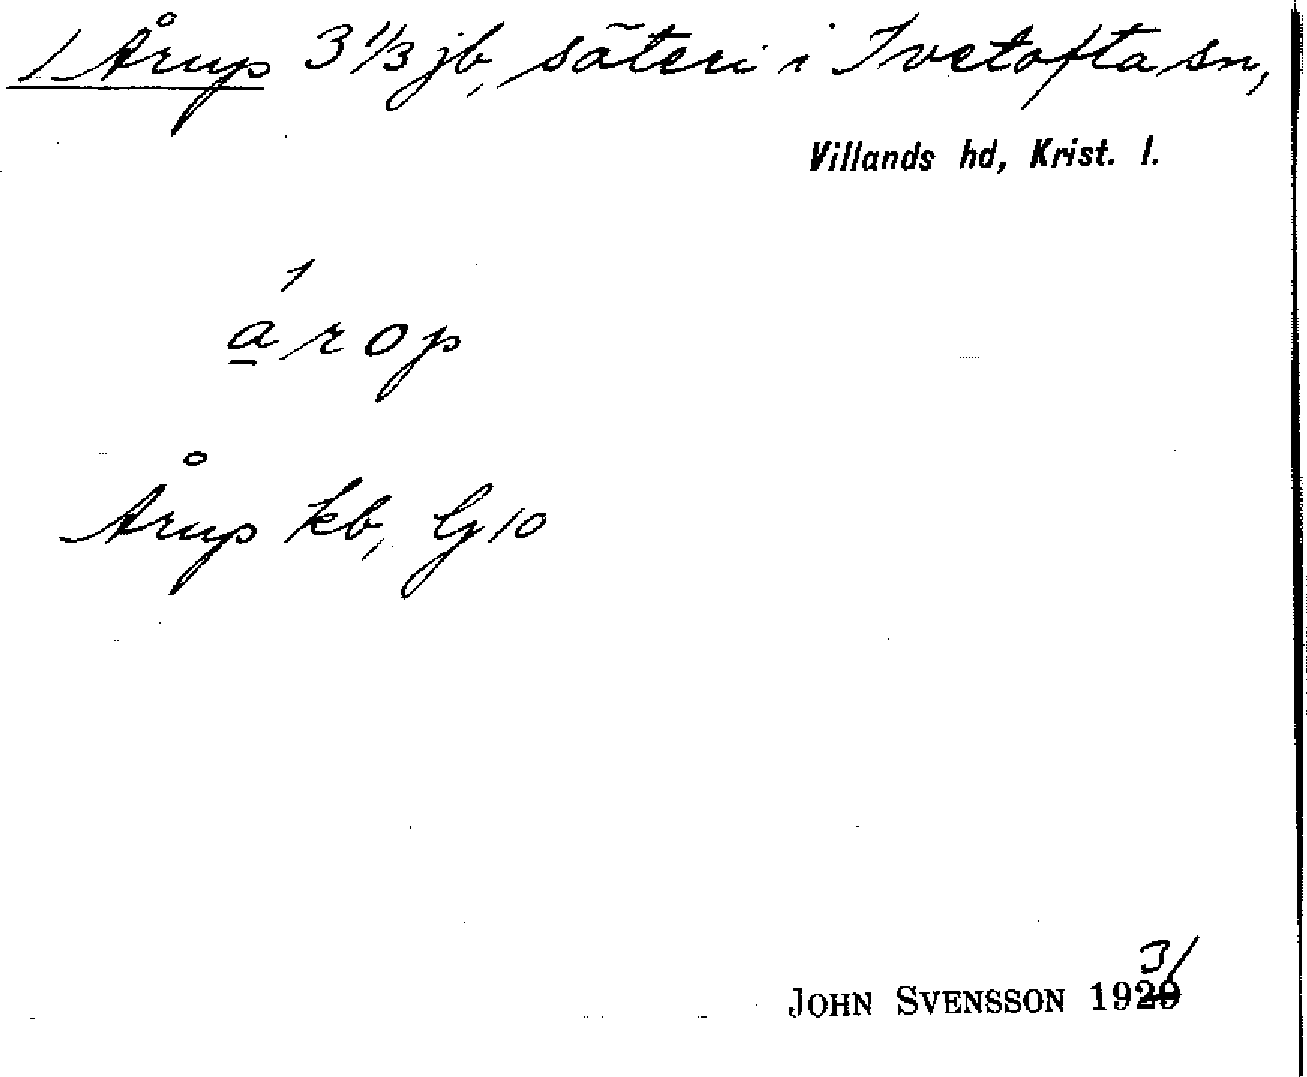 1 Årup 3 1/3 jb, säteri i Ivetofta sn,
Villands hd, Krist. l.
a̱´rop
Årup kb, G 10
JOHN SVENSSON 1931